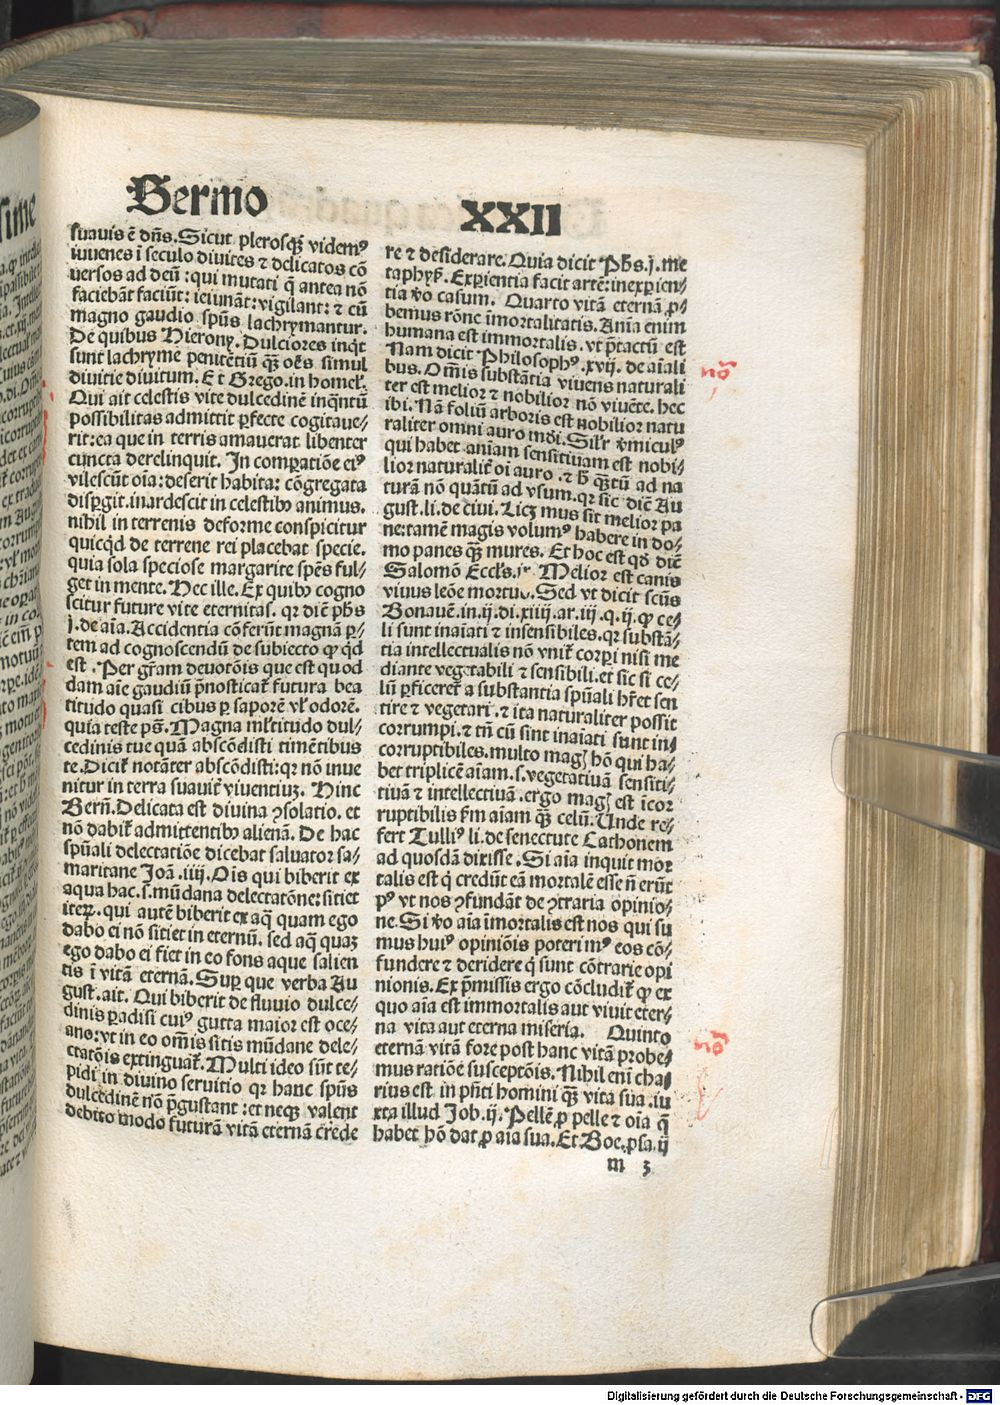 Sermo XXII
suauis ē dñs. Sicut plerosqꝫ videmꝰ
iuuenes ī seculo diuites ⁊ delicatos cō
uersos ad deū : qui mutati q̄ antea nō
faciebāt faciūt: ieiunāt: vigilant: ⁊ cū
magno gaudio spūs lachrymantur.
De quibus Hierony. Dulciores inq̇t
sunt lachryme penitētiū q̄ȝ oēs simul
diuitie diuitum. Et Grego. in homel.
Qui ait celestis vite dulcedinē inq̇ntū
possibilitas admittit ꝑfecte cogitaue/
rit: ea que in terris amauerat libenter
cuncta derelinquit. In comꝑatiōe eiꝰ
vilescūt oīa: deserit habita: cōgregata
disꝑgit. inardescit in celestibꝰ animus.
nihil in terrenis deforme conspicitur
quicq̇d de terrene rei placebat specie.
quia sola speciose margarite spēs ful/
get in mente. Hec ille. Ex quibꝰ cogno
scitur future vite eternitas. qꝛ dicē pħs
j. de aīa. Accidentia cōferūt magnā ꝑ/
tem ad cognoscendū de subiecto ꝙ q̇d
est . Per gr̄am deuotōis que est quod
dam aīe gaudiū p̄nosticat̄ futura bea
titudo quasi cibus ꝑ saporē vl̓ odorē.
quia teste ps̄. Magna ml̓titudo dul/
cedinis tue quā abscōdisti timētibus
te. Dicit̄ notāter abscōdisti: qꝛ nō inue
nitur in terra suauit̓ viuentiuꝫ. Hinc
Bern̄. Delicata est diuina ꝯsolatio. et
nō dabit̄ admittentibꝰ alienā. De hac
spūali delectatiōe dicebat saluator sa/
maritane Joā .iiij. Ois qui biberit ex
aqua hac .s. mūdana delectatōne: sitiet
iteꝝ. qui autē biberit ex aq̄ quam ego
dabo ei nō sitiet in eternū. sed aq̄ quaꝫ
ego dabo ei fiet in eo fons aque salien
tis ī vitā eternā. Suꝑ que verba Au
gust. ait. Qui biberit de fluuio dulce/
dinis ꝑadisi cuiꝰ gutta maior est oce/
ano: vt in eo om̄is sitis mūdane dele/
ctatōis extinguat̄. Multi ideo sūt te/
pidi in diuino seruitio qꝛ hanc spūs
dulcedinē nō p̄gustant : et neqꝫ valent
debito modo futurā vitā eternā crede
re ⁊ desiderare. Quia dicit Pħs. j. me
taphyꝭ. Exꝑientia facit artē: inexꝑien/
tia ꝟo casum. Quarto vitā eternā ꝓ/
bemus rōne īmortalitatis. Anīa enim
humana est immortalis. vt p̄tactū est
Nam dicit Philosophꝰ .xvij. de aīali
bus. Om̄is substātia viuens naturali
ter est melior ⁊ nobilior nō viuēte. hec
ibi. Nā foliū arboris est nobilior natu
raliter omni auro mōi. Sil̓r ꝟmiculꝰ
qui habet anīam sensitiuam est nobi/
lior naturalit̓ oī auro . ⁊ ħ q̄ȝtū ad na
turā nō quātū ad vsum. qꝛ sic dicē Au
gust. li. de ciui. Licꝫ mus sit melior pa
ne: tamē magis volumꝰ habere in do/
mo panes q̄ȝ mures. Et hoc est qd̓ dicē
Salomō Eccl̓s. ix Melior est canis
viuus leōe mortuo. Sed vt dicit scūs
Bonauē. in .ij. di. xiiij. ar. iij. q. ij. ꝙ ce/
li sunt inaīati ⁊ insensibiles. qꝛ substā/
tia intellectualis nō vnit̄ corꝑi nisi me
diante vegetabili ⁊ sensibili. et sic si ce/
lū ꝑficeret̄ a substantia spūali hr̄et sen
tire ⁊ vegetari. ⁊ ita naturaliter possit
corrumpi. ⁊ tn̄ cū sint inaīati sunt in/
corruptibiles. multo magꝭ hō qui ha/
bet triplicē aīam. s. vegetatiuā sensiti/
tiuā ⁊ intellectiuā . ergo magꝭ est īcor
ruptibilis ẜm aīam q̄ȝ celū. Unde re/
fert Tulliꝰ li. de senectute Cathonem
ad quosdā dixisse . Si aīa inquit mor
talis est q̇ credūt eā mortalē esse n̄ erūt
pꝰ vt nos ꝯfundāt de ꝯtraria opinio/
ne. Si ꝟo aīa īmortalis est nos qui su
mus huiꝰ opiniōis poterimꝰ eos cō/
fundere ⁊ deridere q̇ sunt cōtrarie opi
nionis. Ex p̄missis ergo cōcludit̄ ꝙ ex
quo aīa est immortalis aut viuit eter/
na vita aut eterna miseria. Quinto
eternā vitā fore post hanc vitā probe/
mus ratiōe susceptōis. Nihil enī cha/
rius est in p̄n̄ti homini q̄ȝ vita sua . iu
xta illud Job .ij. Pellē ꝓ pelle ⁊ oīa q̄
habet hō dat ꝓ aīa sua. Et Boe. ꝓsa. ij
m 3
nō
nō
Digitalisierung gefördert durch die Deutsche Forschungsgemeinschaft - DFG